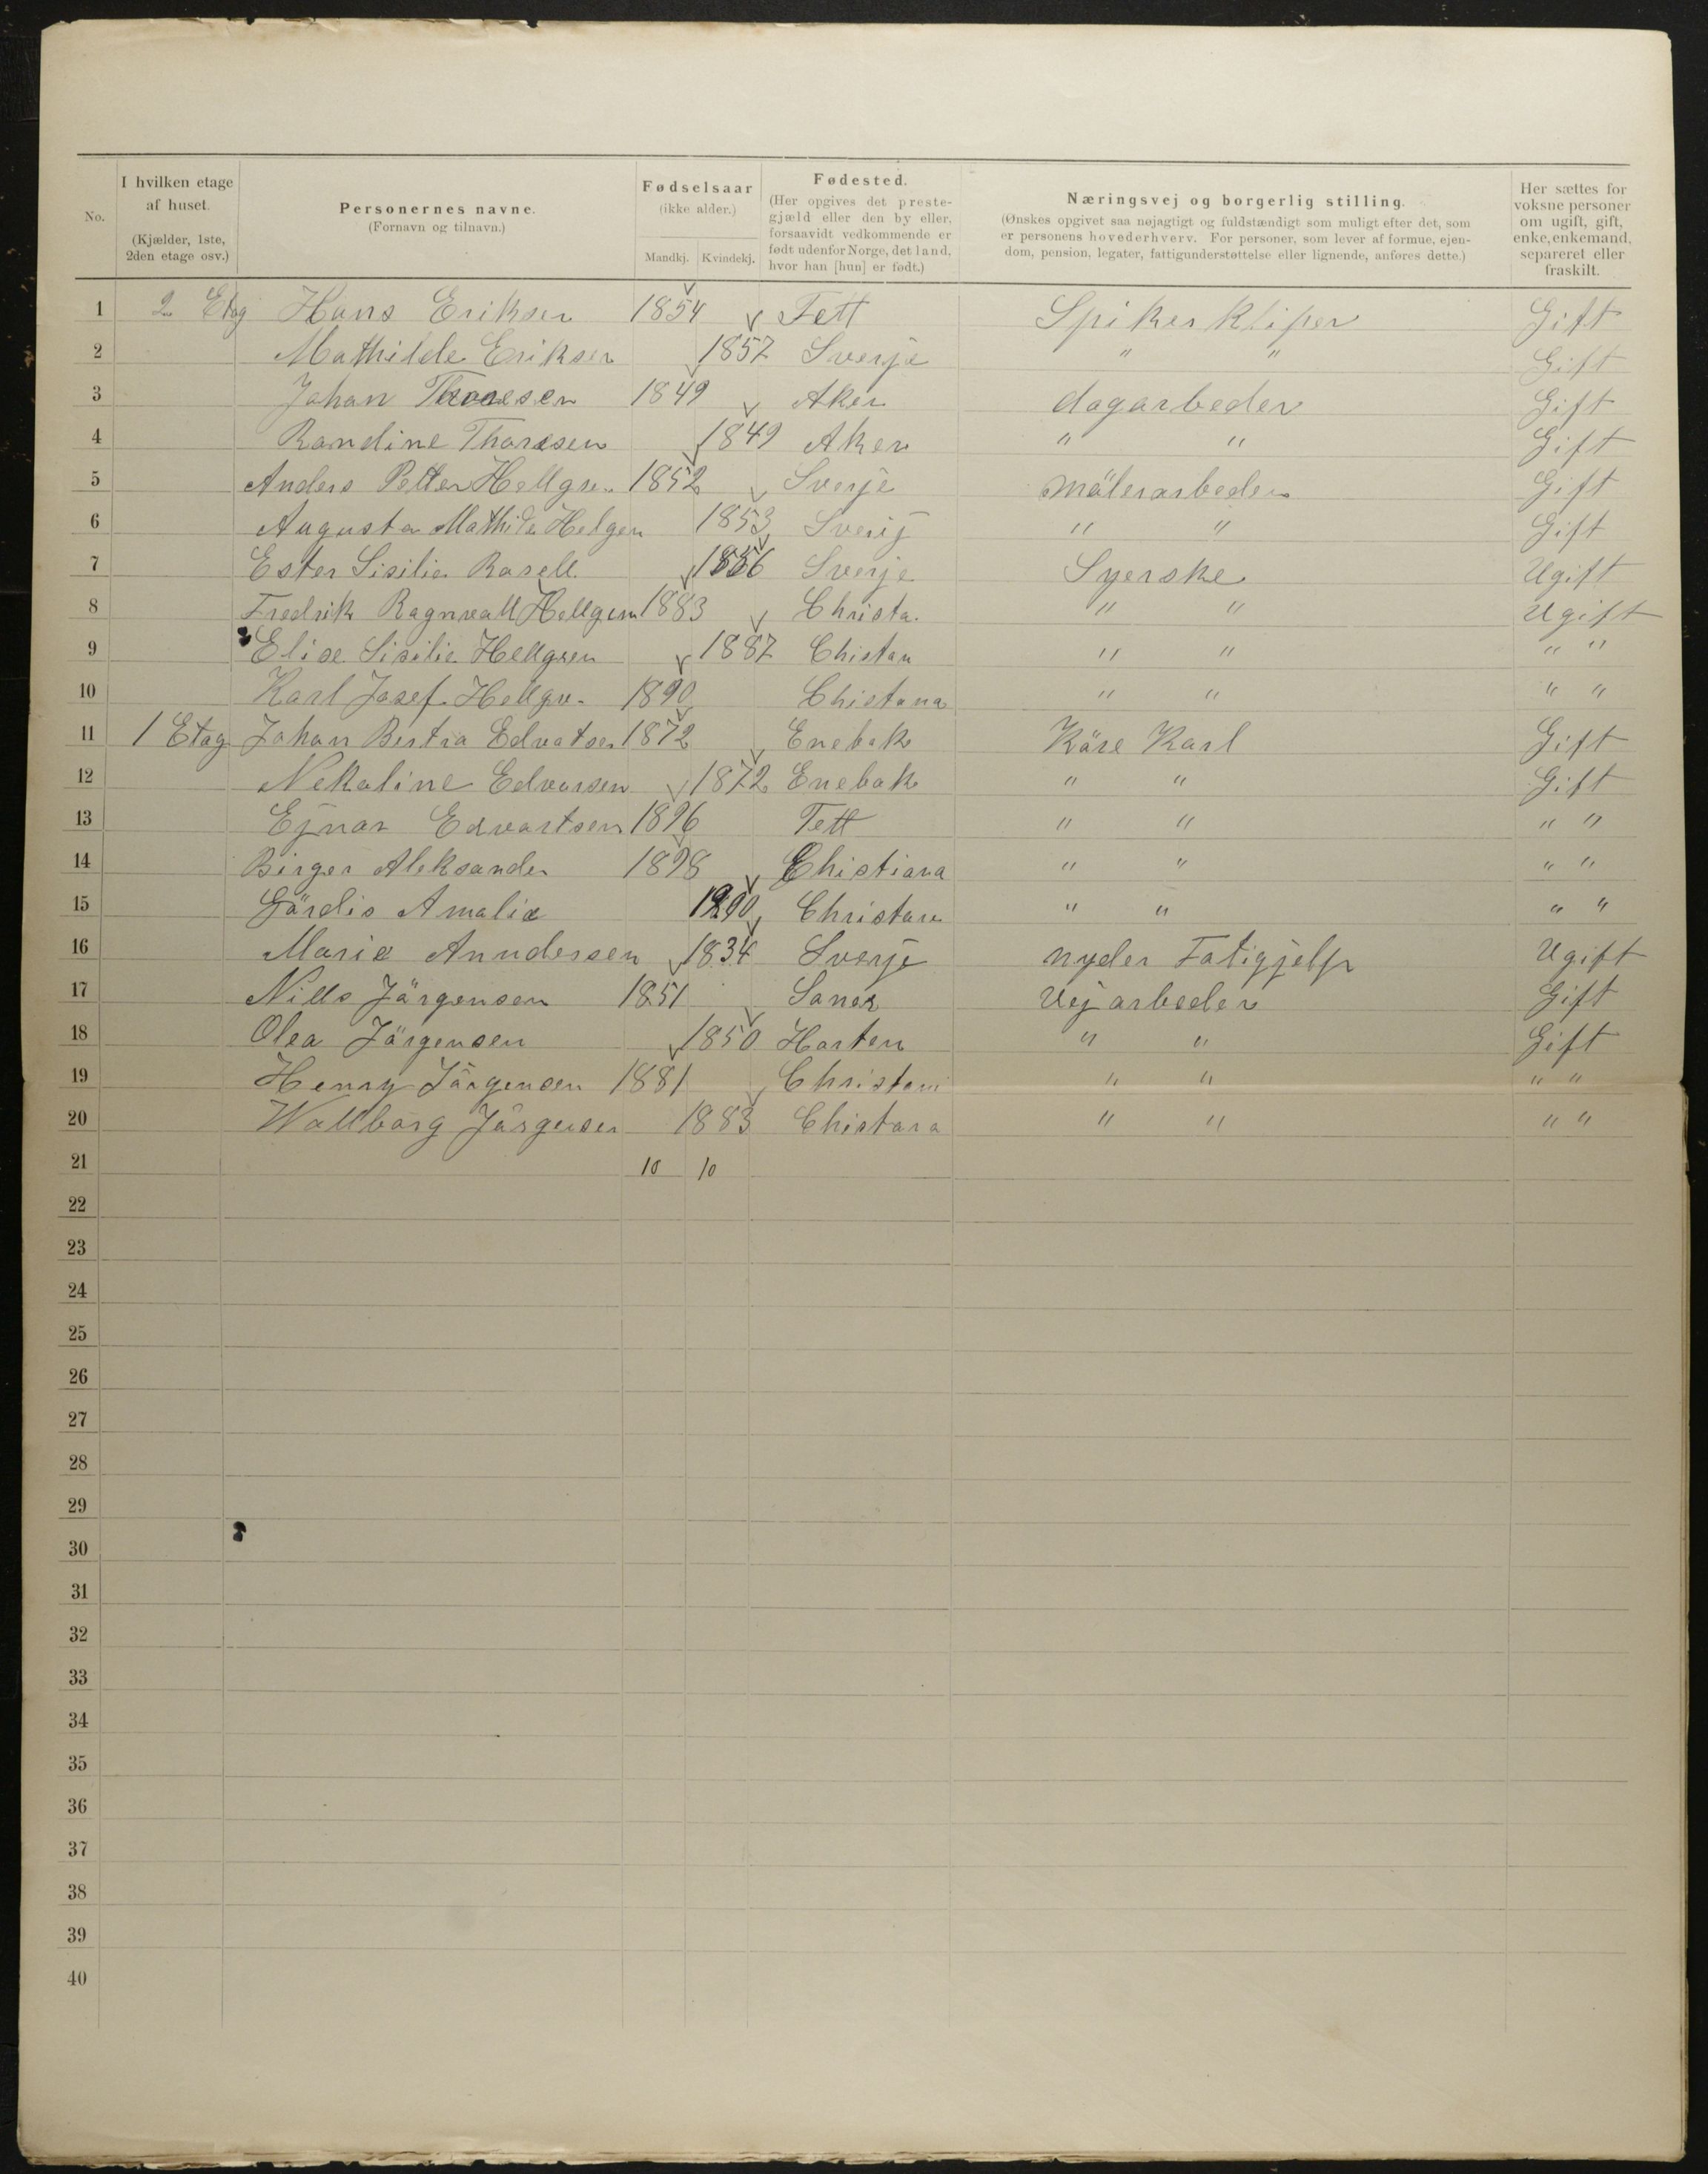 No.
I hvilken etage af huset.
(Kjælder, 1ste, 2den etage osv.)
Personernes navne.
(Fornavn og tilnavn.)
Fødselsaar
(ikke alder.)
Mandkj. Kvindekj.
Fødested.
(Her opgives det prestegjæld eller den by eller, forsaavidt vedkommende er født udenfor Norge, det land, hvor han [hun] er født.)
Næringsvej og borgerlig stilling.
(Ønskes opgivet saa nøjagtigt og fuldstændigt som muligt efter det, som er personens hovederhverv. For personer, som lever af formue, ejendom, pension, legater, fattigunderstøttelse eller lignende, anføres dette.)
Her sættes for voksne personer om ugift, gift, enke, enkemand, separeret eller fraskilt.
1 2 Etag Hans Eriksen 1854 Fett Spiker kliper Gift
2 Mathilde Eriksen 1857 Sverje " " Gift
3 Johan Thoresen 1849 Aker dagarbeder Gift
4 Randine Thoresen 1849 Aker " " Gift
5 Anders Petter Hellgren 1852 Sverje mälerarbeder Gift
6 Augusta Mathilde Helgen 1853 Sverij " " Gift
7 Ester Sisilie Rasell 1856 Sverje Syerske Ugift
8 Fredrik Ragnvall Hellgren 1883 Christa. " " Ugift
9 Elise Sisilie Hellgren 1887 Chistan " " " "
10 Karl Josef Hellgr. 1890 Chistana " " " "
11 1 Etag Johan Edvatsen 1872 Enebak Käre Karl Gift
12 Nekoline Edvarsen 1872 Enebak " " Gift
13 Ejnar Edvartsen 1896 Fett " " " "
14 Birger Aleksander 1898 Chistiana " " " "
15 Gärdis Amalie 1900 Christan " " " "
16 Marie Anndersen 1834 Sverje nyder Fatigjelp Ugift
17 Nills Järgensen 1851 Saner Vejarbeder Gift
18 Olea Järgensen 1850 Horten " " Gift
19 Henry Järgensen 1881 Christani " " " "
20 Wallbarg Järgensen 1883 Chistana " " " "
21 10 10
22
23
24
25
26
27
28
29
30
31
32
33
34
35
36
37
38
39
40